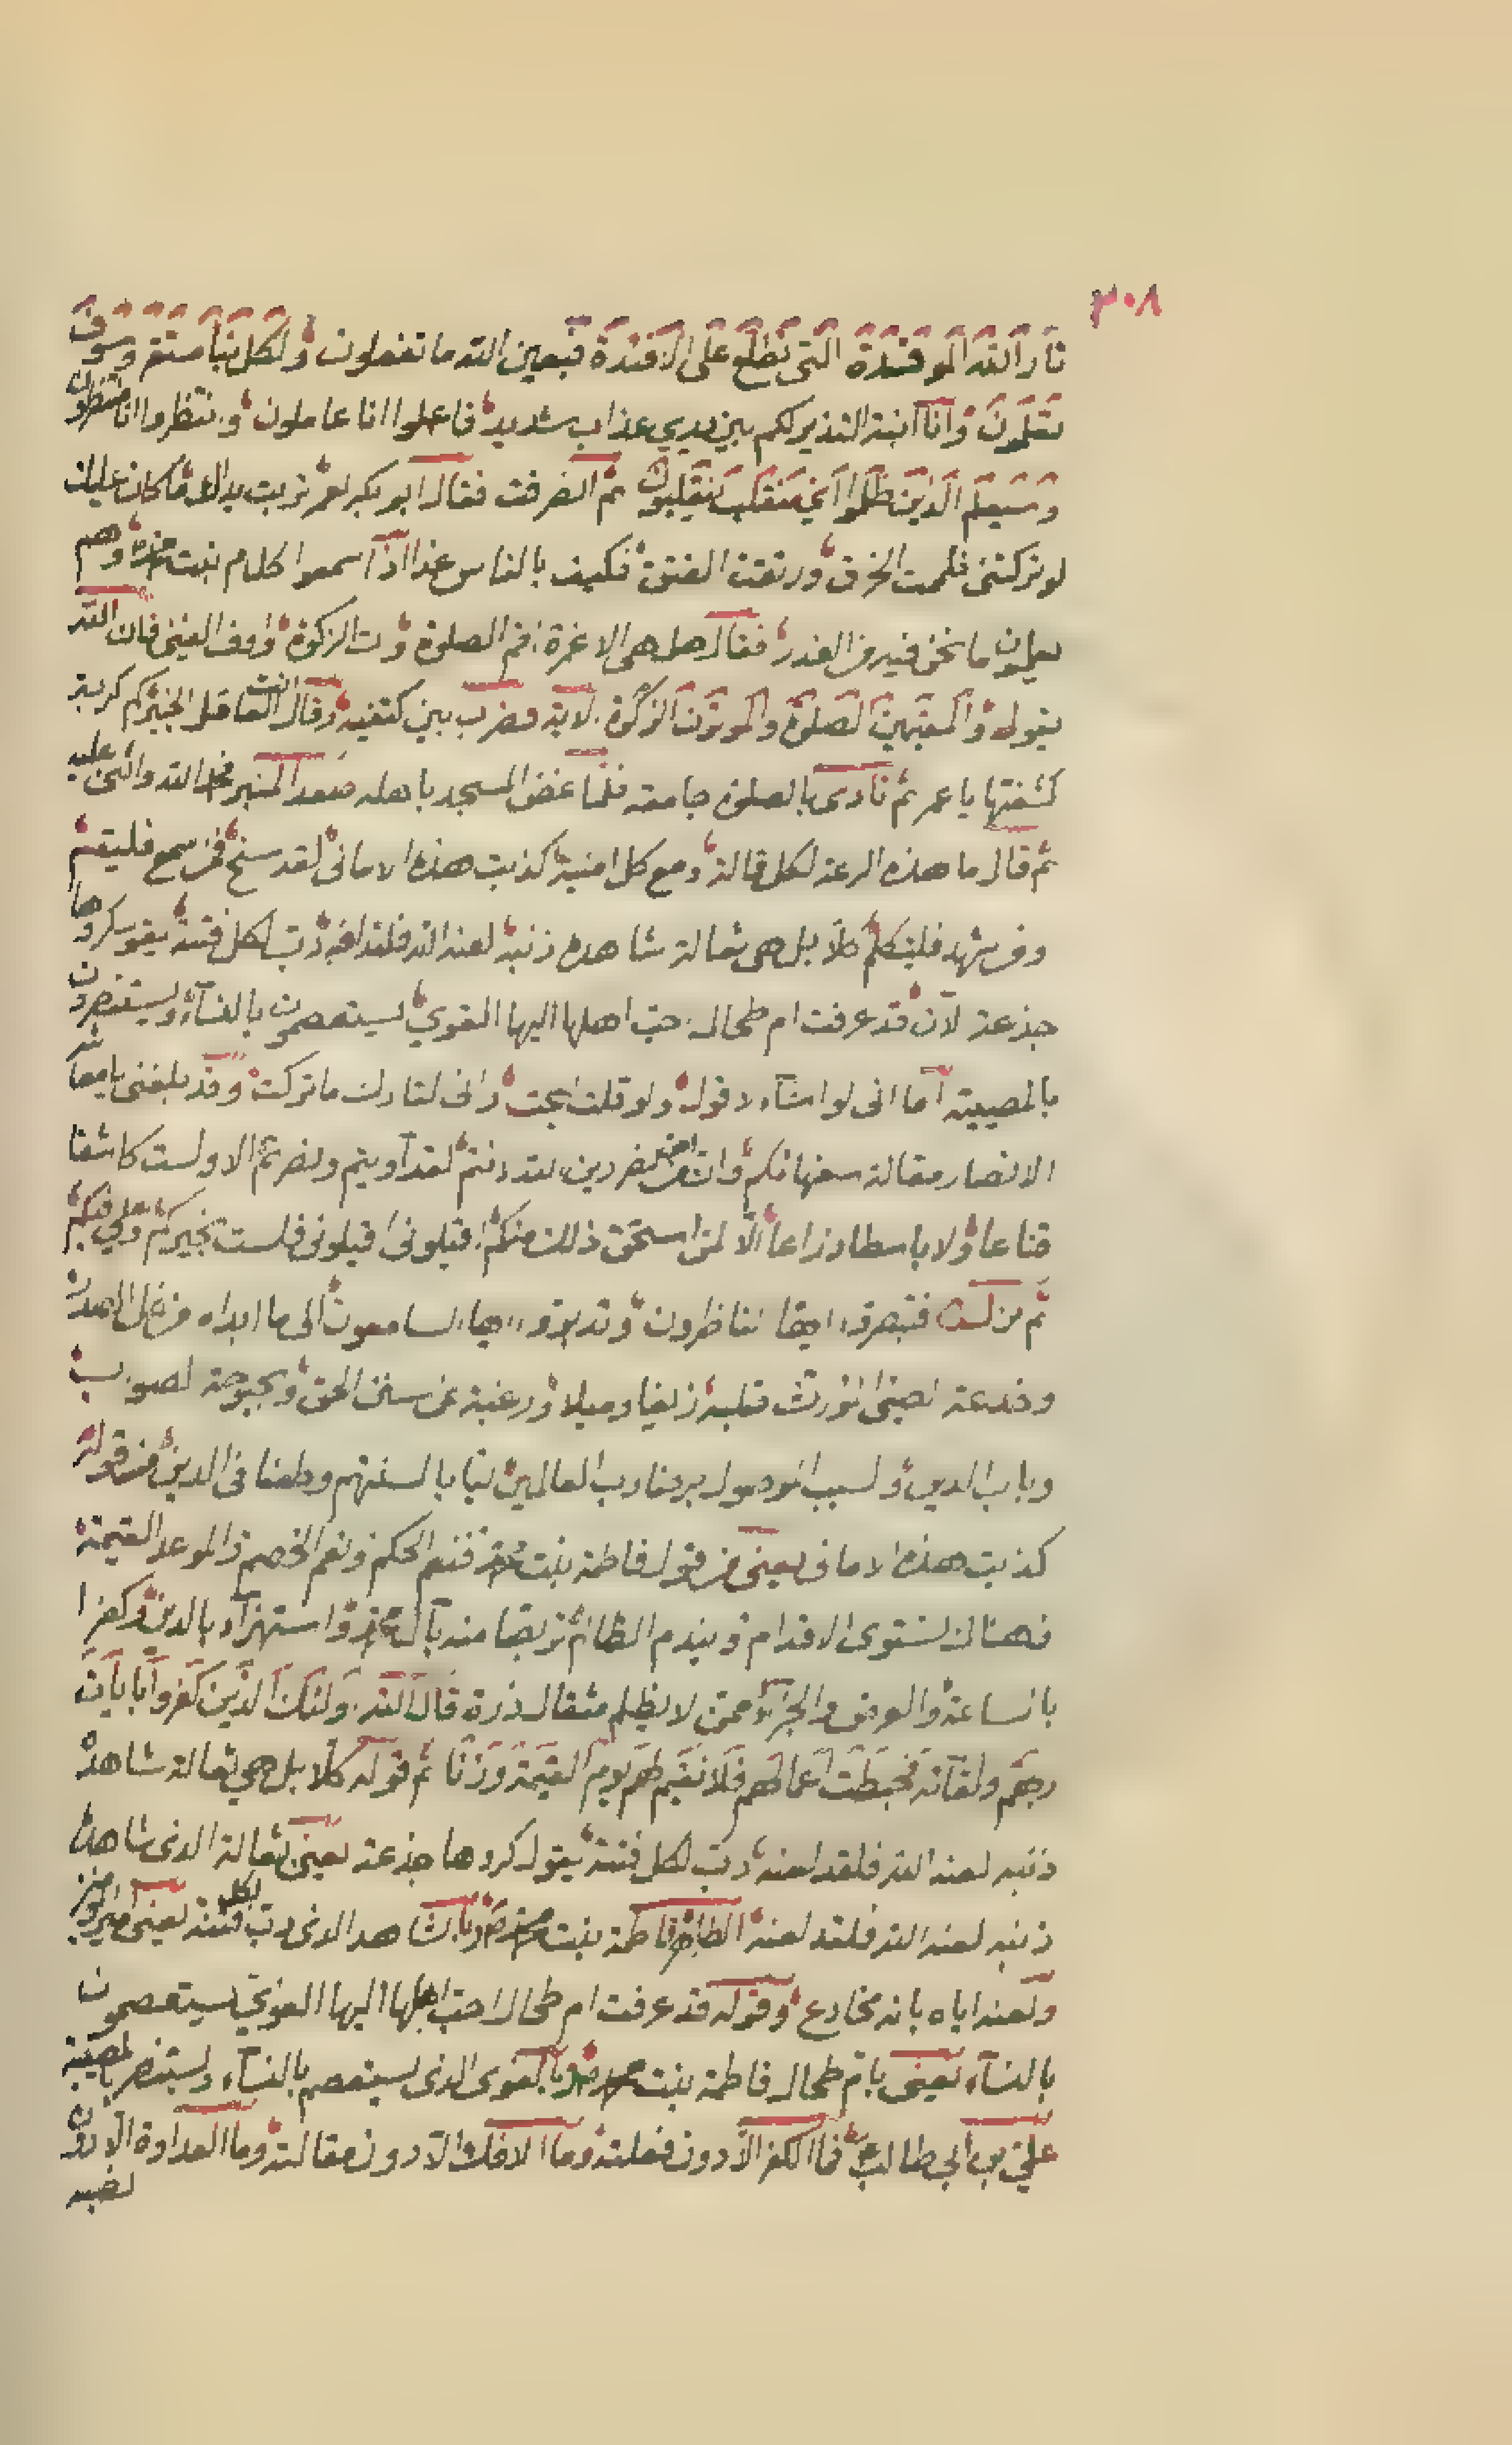 ٣٠٨
نار الله الموقدة التي تطلع على الافئدة فبعين الله ما تفعلون ولكل نبأ مستقر وسوف
تعلمون وانا ابنة النذير لكم بين يدي عذاب شديد فاعملوا انا عاملون وانتظروا انا منتظرون
وسيعلم الذين ظلموا اي منقلب ينقلبون ثم انصرفت فقال ابو بكر لعمر تربت يداك ما كان عليك
لو تركتني فلممت الخرق ورتقت الفتق فكيف بالناس غدا اذا سمعوا كلام بنت محمد وهم
يعلمون ما نحن فيه من الغدر فقال هل هي الا غمرة اقم الصلوة وات الزكوة واوف الفيئ فان الله
يقول والمقيمين الصلوة والموتون الزكوة الاية فضرب بين كتفيه وقال انت القائل كم كربة
كشفتها يا عمر ثم نادى بالصلوة جامعه فلما غض المسجد باهله صعد المنبر فحمد الله واثنى عليه
ثم قال ما هذه الرعة لكل قالة ومع كل امنية كذبت هذه الاماني لقد سنح فمن سمع فليقم
ومن شهد فليتكلم كلا بل هي ثعالة شاهده ذنبه لعنه الله فلقد لعنه رب لكل فتنة يقول كروها
جذعة الان قد عرفت ام طحال احب اهلها اليها الغوي يستعصمون بالنسآء ويستنصرون
بالمصيبة اما اني لو اشآء لاقول ولو قلت لبحت واني لتارك ما تركت وقد بلغني يا معاشر
الانصار مقالة سفهائكم وانتم لقد اويتم ونصرتم الا ولست كاشفا
قناعا ولا باسطا ذراعا الا لمن استحق ذلك منكم اقيلوني اقيلوني فلست بخيركم وعلي فيكم
ثم نزل فتبصروا ايها الناظرون وتدبروا ايها السامعون الى ما ابداه من غل الصدر
وخدعة قلبه زيغا وميلا ورغبة عن سنن الحق وبحبوحة الصواب
وباب الدين وسبب الوصول برضا رب العالمين ليا بالسنتهم وطعنا في الدين فمن قوله
كذبت هذه الاماني يعني من قول فاطمة بنت محمد فنعم الحكم ونعم الخصم والموعد القيمة
فهنالك تستوي الاقدام ويندم الظالم تربصا منه بآل محمد واستهزآء بالدين وكفرا
بالساعة والعرض والجزآء ممن لا يظلم مثقال ذرة قال الله اولئك الذين كفروا بايات
ربهم ولقائه فحبطت اعمالهم فلا نقيم لهم يوم القيمة وزنا ثم قوله كلا بل هي ثعالة شاهده
ذنبه لعنه الله فلقد لعنه رب لكل فتنة يقول كروها جذعة يعني بثعالة الذي شاهده
ذنبه لعنه الله فلقد لعنه الطاهرة فاطمة بنت محمد وبالشاهد الذي رب لكل فتنة يعني امير المؤمنين
ولعنه اياه بانه مخادع وقوله قد عرفت ام طحال احب اهلها اليها الغوي يستعصمون
بالنسآء يعني بام طحال فاطمة بنت محمد وبالغوي الذي يستعصم بالنسآء ويستنصر بالمصيبة
علي بن ابي طالب فما الكفر الا دون فعلته وما الافك الا دون مقالته وما العداوة الا دون
نصبه